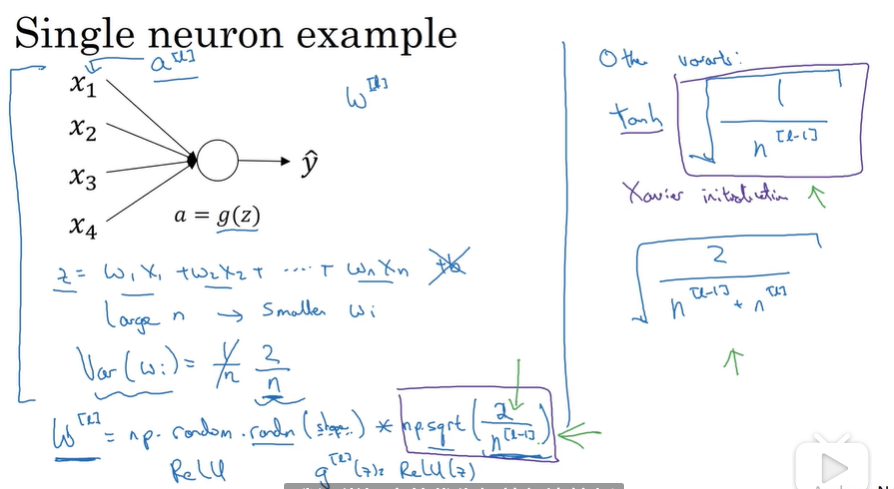 Single neuron example
a^[l]
x₁
x₂
x₃
x₄
ŷ
a = g(z)
w^[l]
z = w₁x₁ + w₂x₂ + ···· + wₙxₙ +b
Large n → Smaller wᵢ
Var(wᵢ) = 1/n 2/n
W^[l] = np.random.randn(shape) * np.sqrt(2/n^[l-1])
ReLU g^[l](z) = ReLU(z)
Other variants:
tanh √(1/n^[l-1])
Xavier initialization ↑
√(2/(n^[l-1] + n^[l]))
↑